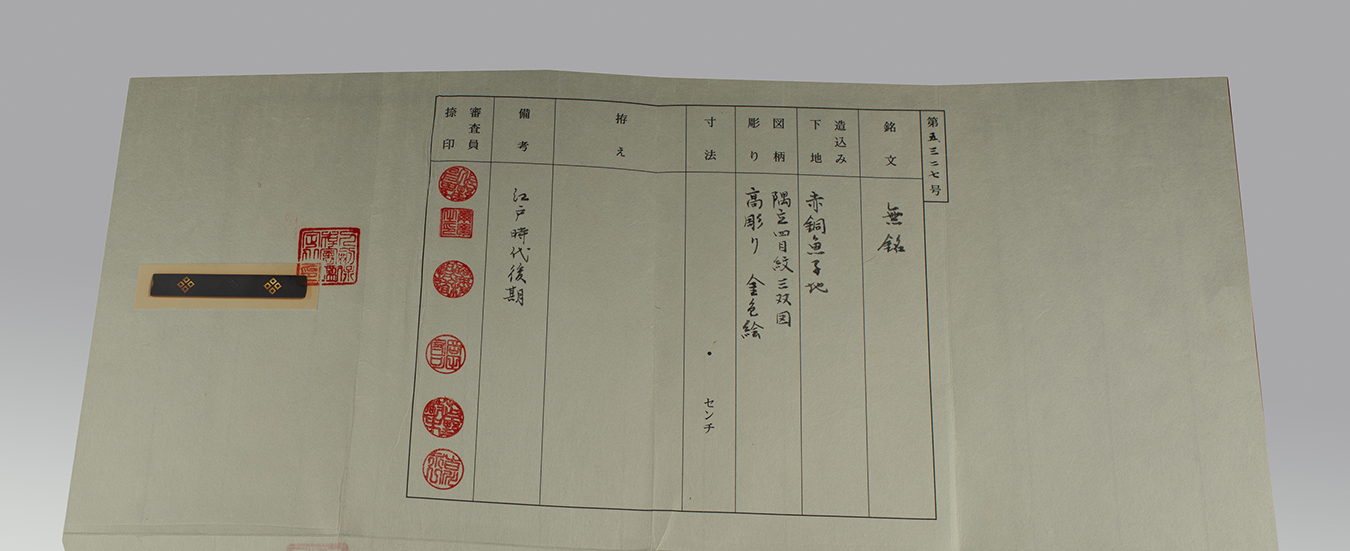 第五、三二七号
銘文
無銘
造込み
下地
赤銅魚子地
図柄
彫り
隅立四目紋三双図
高彫り 金色絵
寸法
・ センチ
拵え
備考
江戸時代後期
審査員
捺印